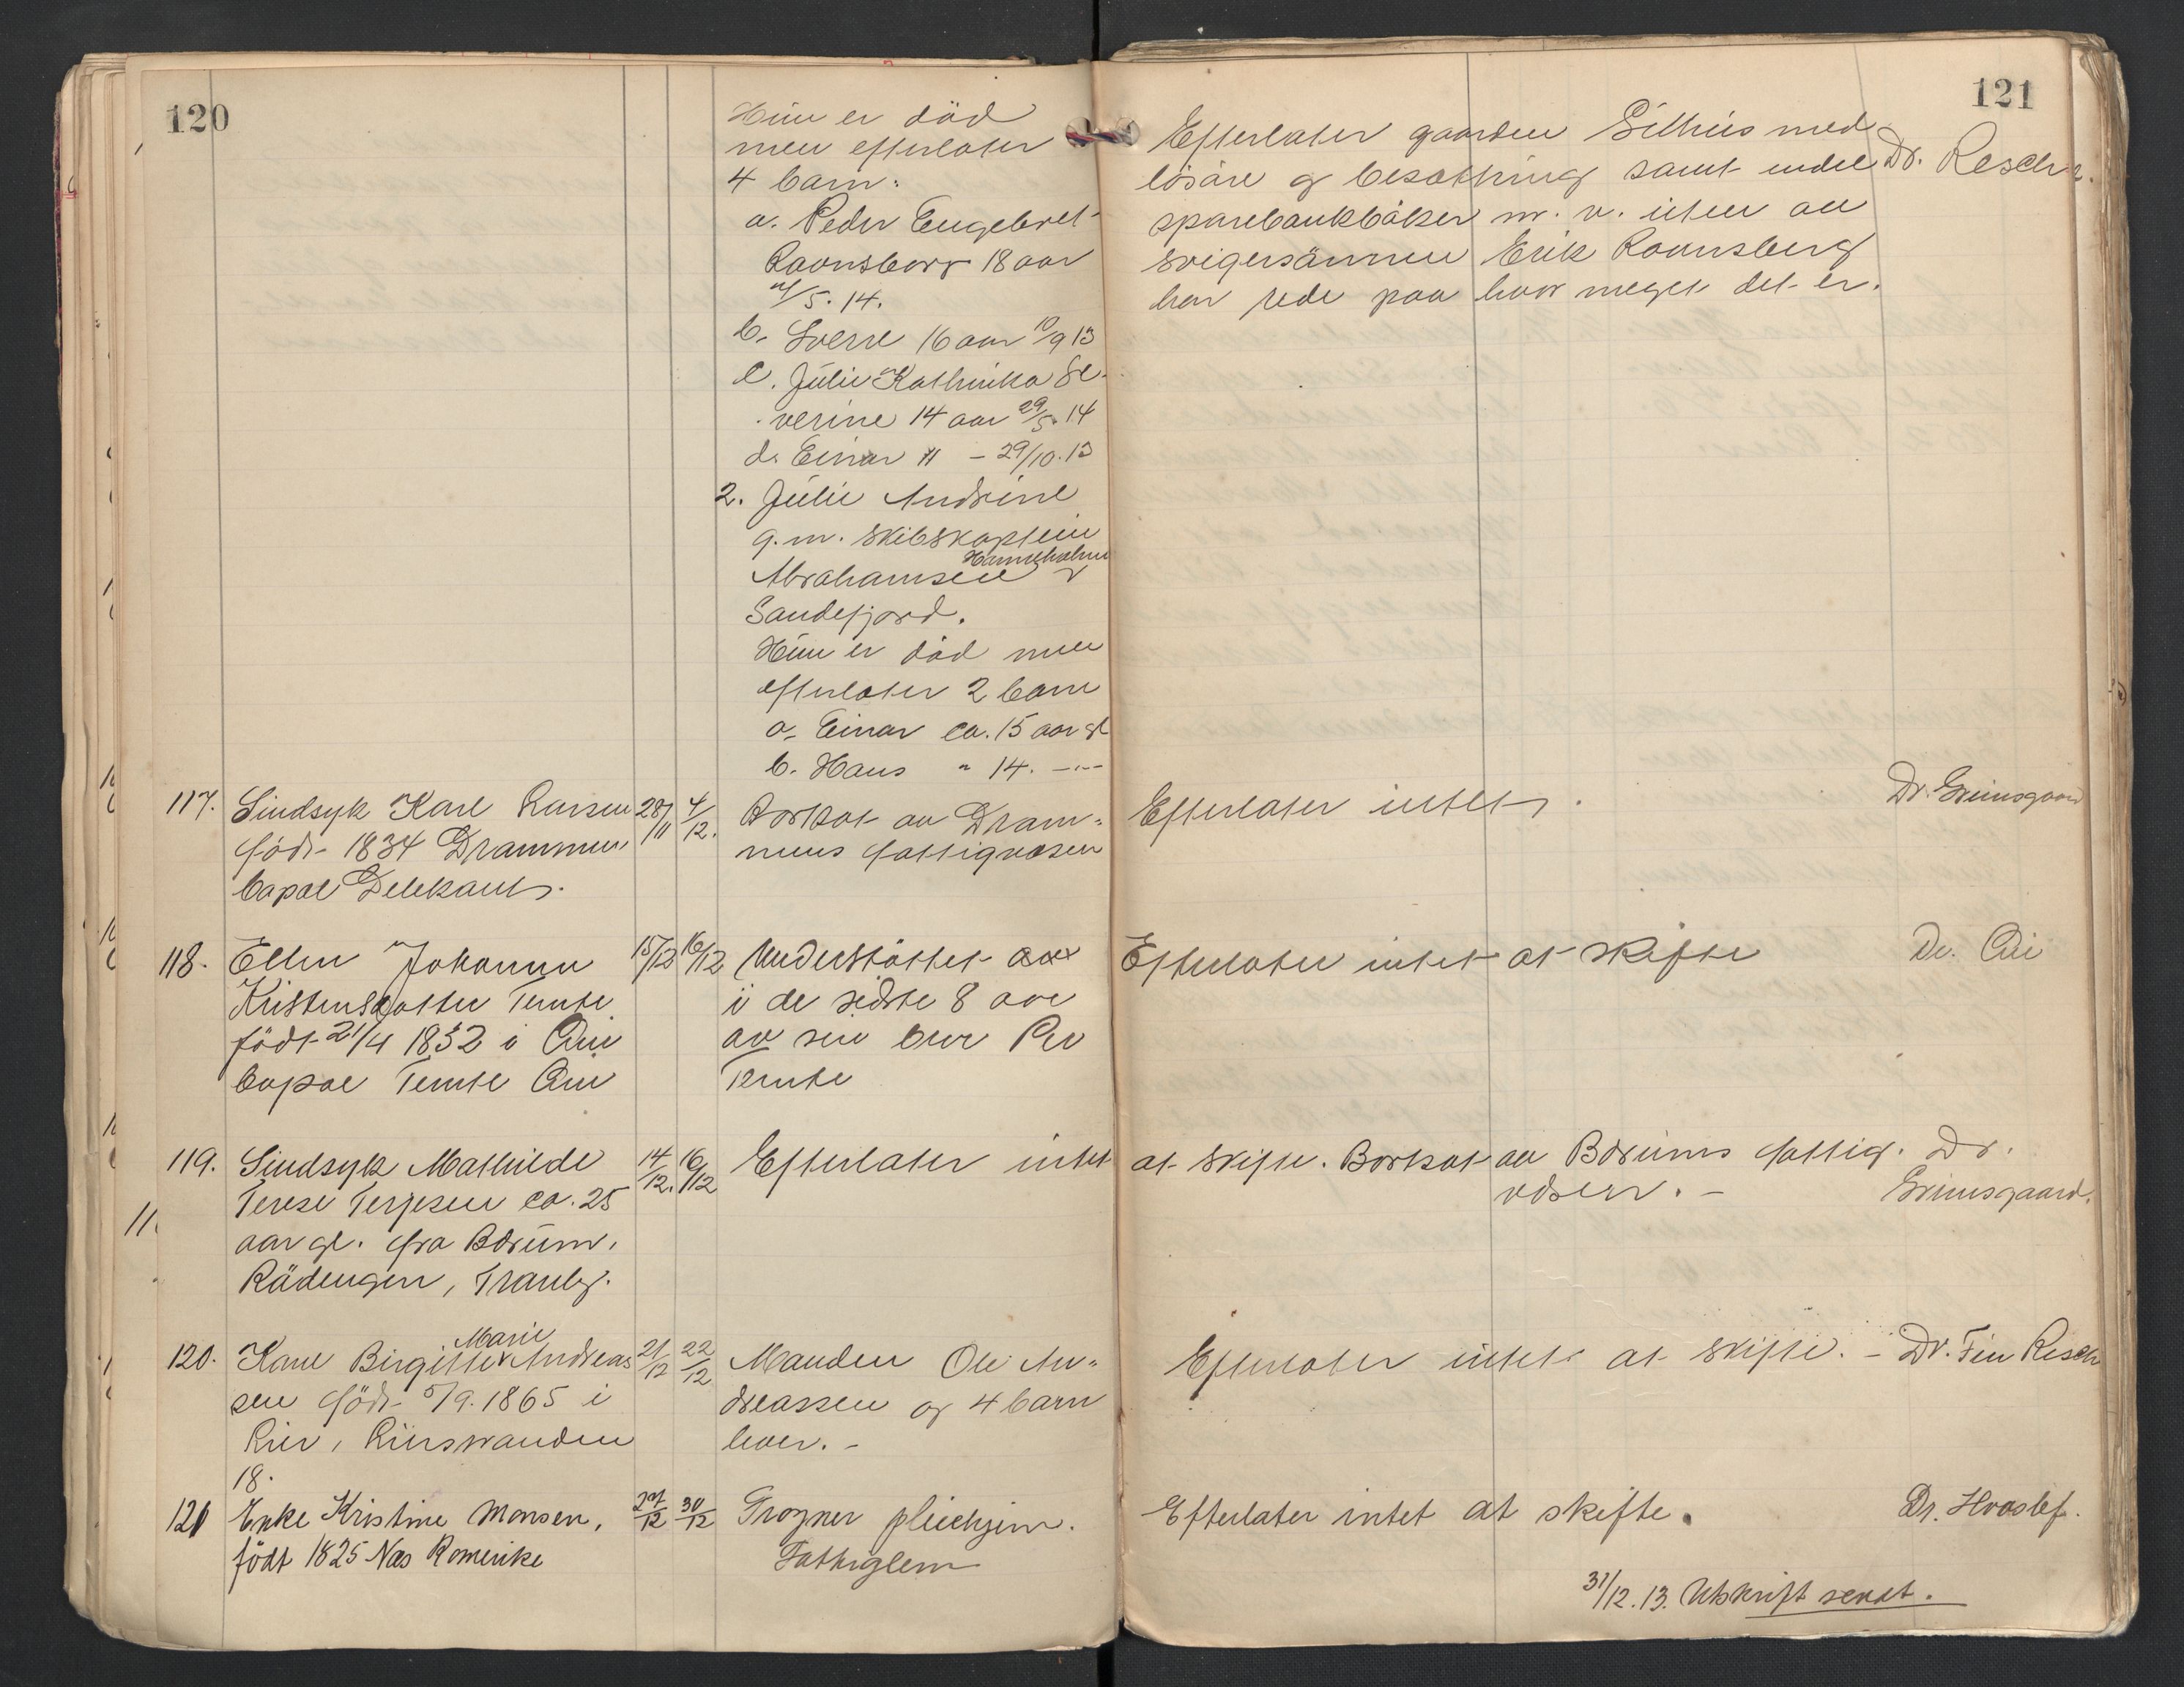 120
Hun er död
men efterlater
4 barn:
a. Peder Engebret
Ravnsborg 18 aar
5. 14.
b. Sverre 16 aar 10/9 13
c. Julie Kathinka Se-
verine 14 aar 29/5. 14
d. Einar 11 - 29/10. 13
2. Julie Andrine
g. m. skibskaptein
Hannsholm
Abrahamsen
Sandefjord.
Hun er död men
efterlater 2 barn
a. Einar ca. 15 aar gl
b. Hans " 14. -"-
117. Sindsyk Karl Larsen 28/11 4/12. Bortsat av Dram-
född 1834 Drammen mens fattigvæsen
bopæl Delekants.
118. Ellen Johanne 15/12 16/12 Understöttet
Kristensdatter Temte i de sidste 8 aar
födt 21/4 1832 i av sin bror Per
bopæl Temte Temte
119. Sindsyk Mathilde 14/12. 16/12 Efterlater intet
Terese Terjesen ca. 25
aar gl. fra Bærum.
Rådengen, Tranby.
120. Karen Birgitte Marie Andreas 21/12 22/12 Manden Ole An-
sen född 5/9. 1865 i dreassen og 4 barn
Lier, Lierstranden lever. -
18.
121 Enke Kristine Monsen, 27/12 30/12 Frogner pleiehjem.
född 1825 Næs Romerike Fattiglem
121
Efterlater gaarden Gilhus med
lösöre og besætning samt endel Dr. Resch
sparebankböker m. v. uten at
svigersönnen Erik Ravnsberg
har rede paa hvor meget det er.
Efterlater intet. Dr. Grimsgaard
Efterlater intet at skifte Dr.
at skifte. Bortsat av Bærums fattig- Dr.
væsen. - Grimsgaard.
Efterlater intet at skifte. - Dr. Fin Resch
Efterlater intet at skifte. Dr. Hvoslef.
31/12. 13. Utskrift sendt.